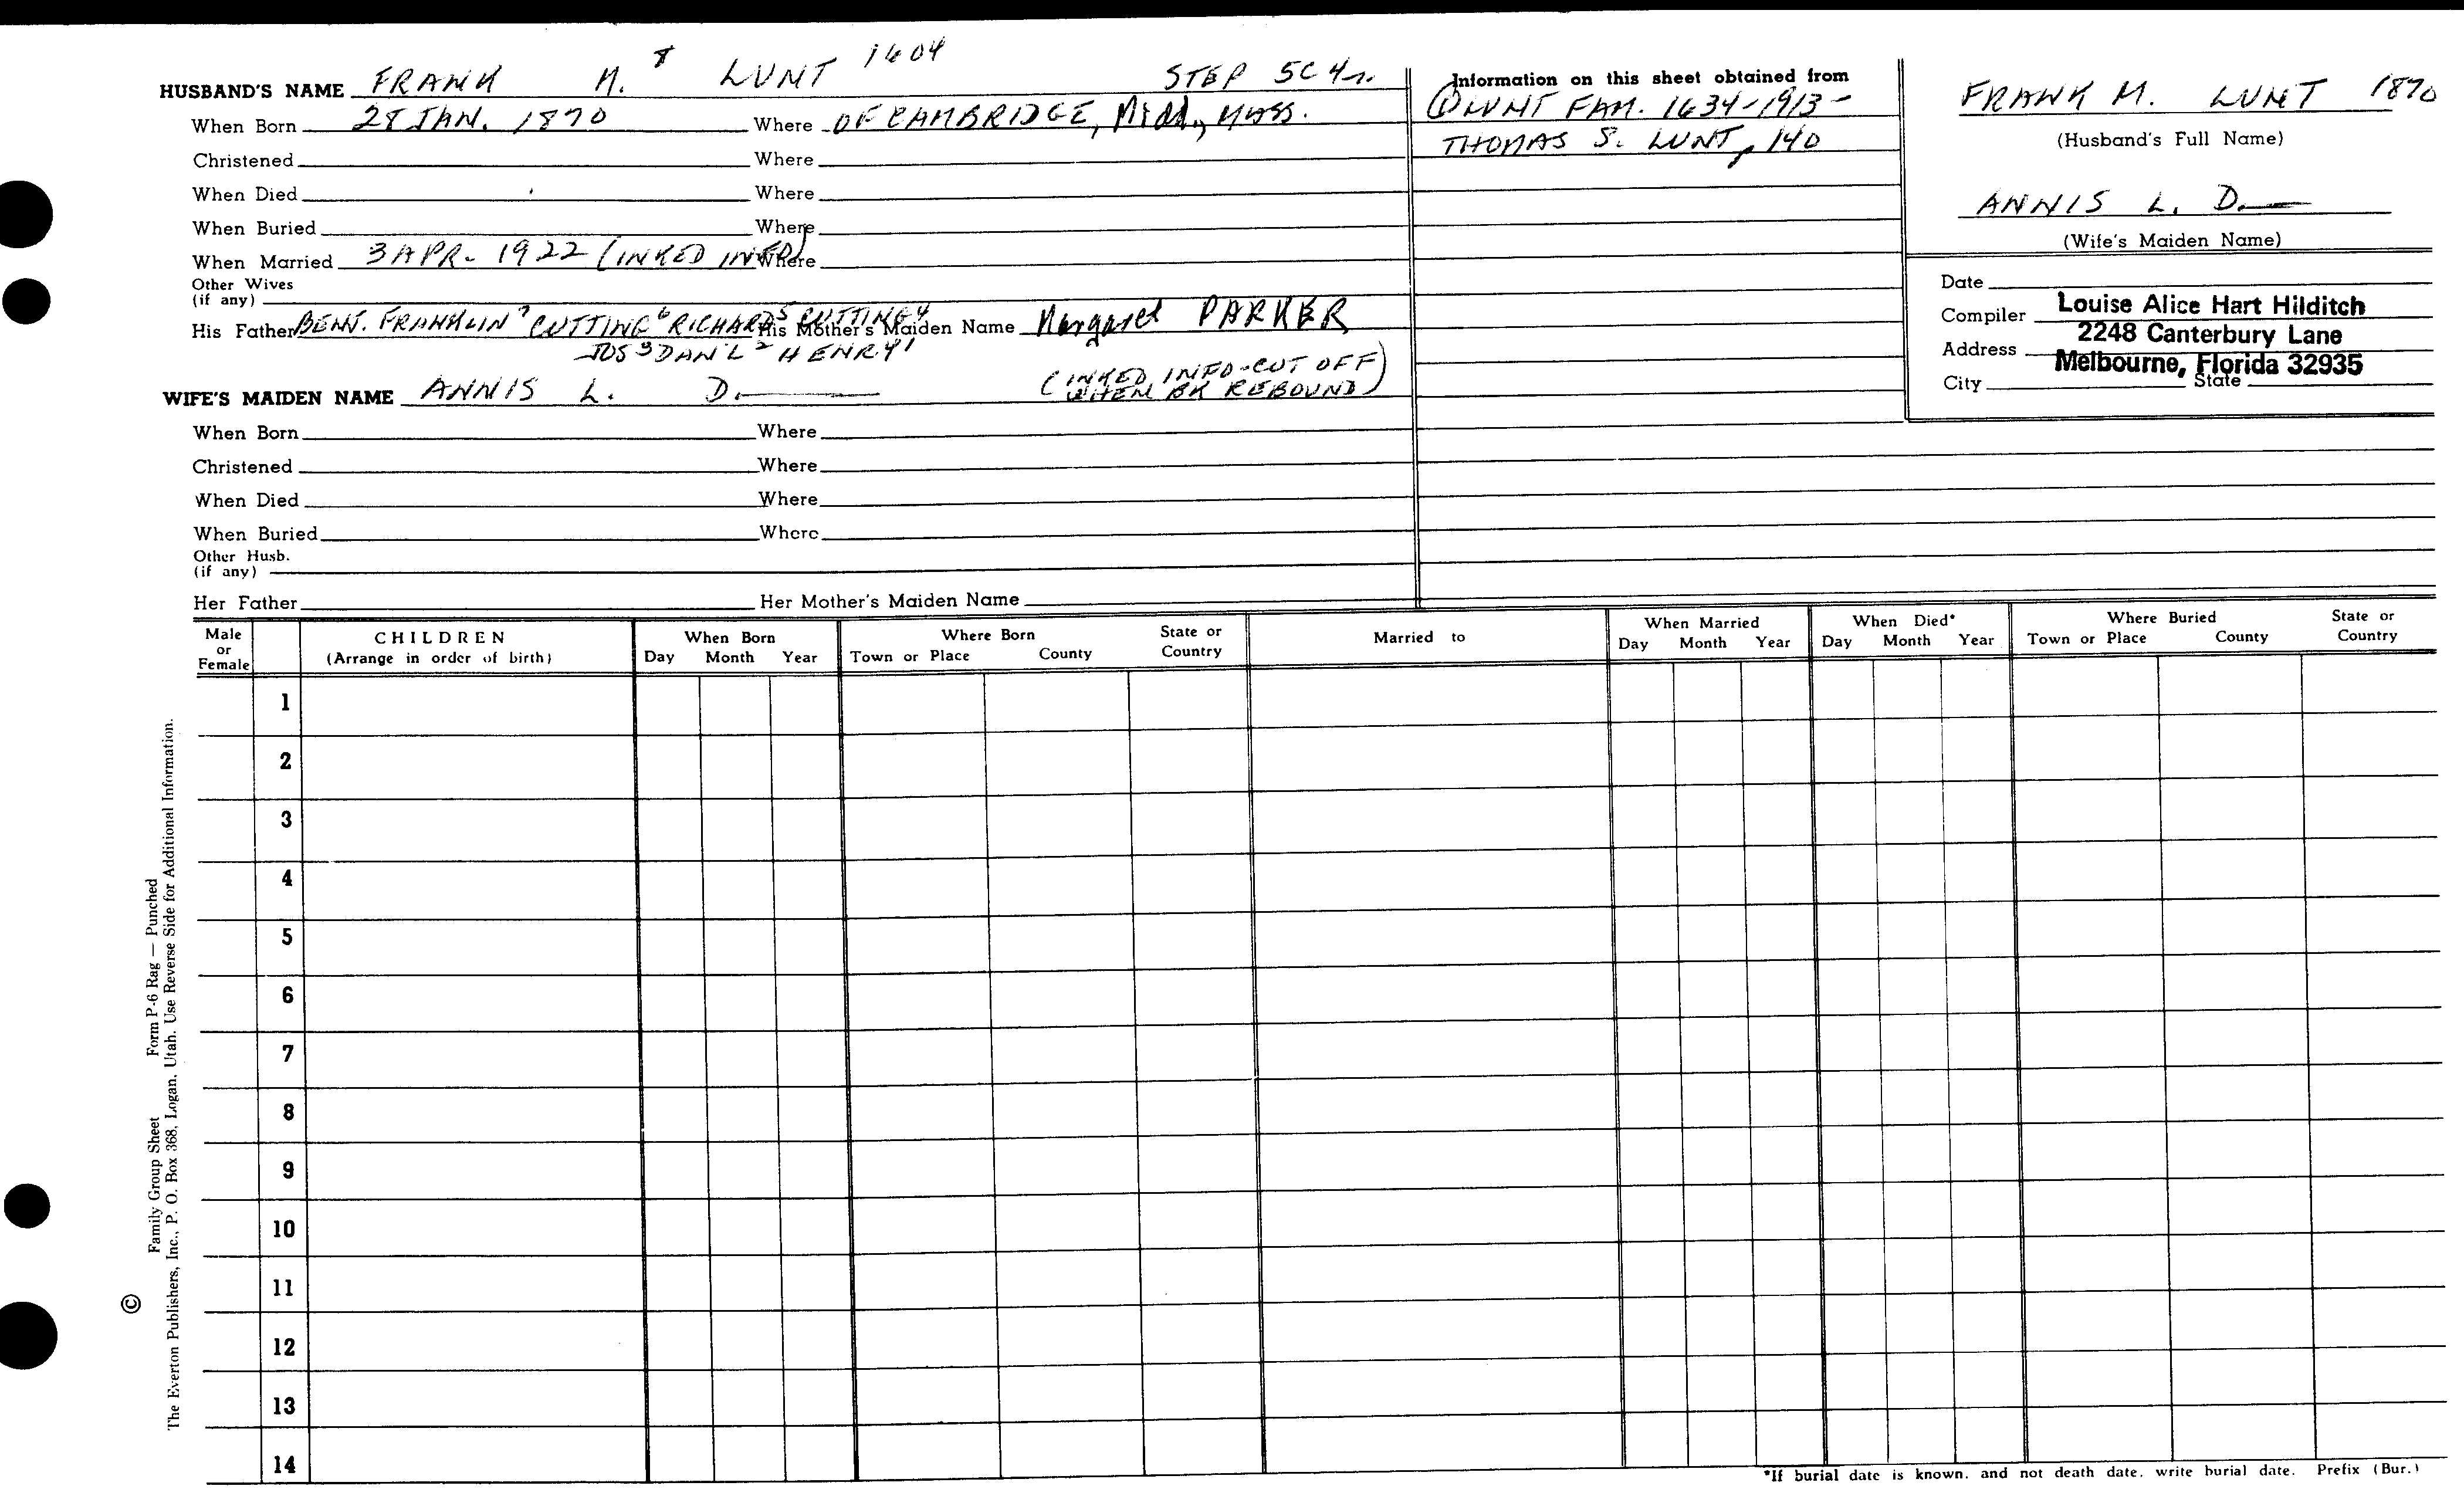 HUSBAND'S NAME FRANK M. 8 LUNT 1604 STEP 5C 4r.
When Born 28 JAN. 1870 Where OF CAMBRIDGE, Midd., MASS.
Christened Where
When Died Where
When Buried Where
When Married 3 APR. 1922 (INKED INFO) Where
Other Wives
(if any)
His Father BENJ. FRANKLIN 7 CUTTING 6 RICHARD 5 CUTTING 4 His Mother's Maiden Name Margaret PARKER
JOS 3 DAN'L 2 HENRY 1
WIFE'S MAIDEN NAME ANNIS L. D.— (INKED INFO-CUT OFF
WHEN BK REBOUND)
When Born Where
Christened Where
When Died Where
When Buried Where
Other Husb.
(if any)
Her Father Her Mother's Maiden Name
Information on this sheet obtained from
① LUNT FAM. 1634-1913-
THOMAS S. LUNT, 140
FRANK M. LUNT 1870
(Husband's Full Name)
ANNIS L. D.—
(Wife's Maiden Name)
Date
Compiler Louise Alice Hart Hilditch
2248 Canterbury Lane
Address Melbourne, Florida 32935
City State
Male or Female CHILDREN (Arrange in order of birth) When Born Day Month Year Where Born Town or Place County State or Country Married to When Married Day Month Year When Died* Day Month Year Where Buried Town or Place County State or Country
1
2
3
4
5
6
7
8
9
10
11
12
13
14
*If burial date is known, and not death date, write burial date. Prefix (Bur.)
Family Group Sheet Form P-6 Rag — Punched
© The Everton Publishers, Inc., P. O. Box 368, Logan, Utah. Use Reverse Side for Additional Information.